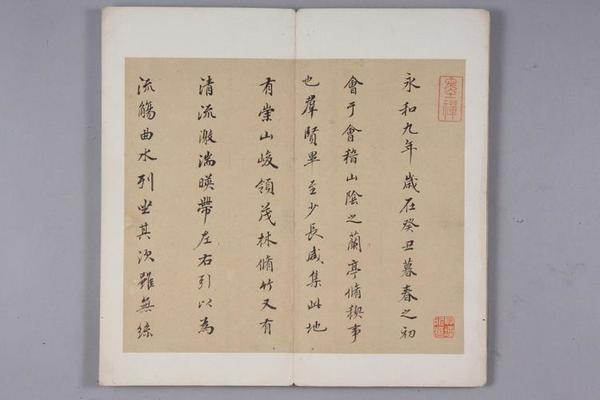 永和九年歲在癸丑暮春之初
會于會稽山陰之蘭亭脩稧事
也羣賢畢至少長咸集此地
有崇山峻領茂林脩竹又有
清流激湍暎帶左右引以為
流觴曲水列坐其次雖無絲